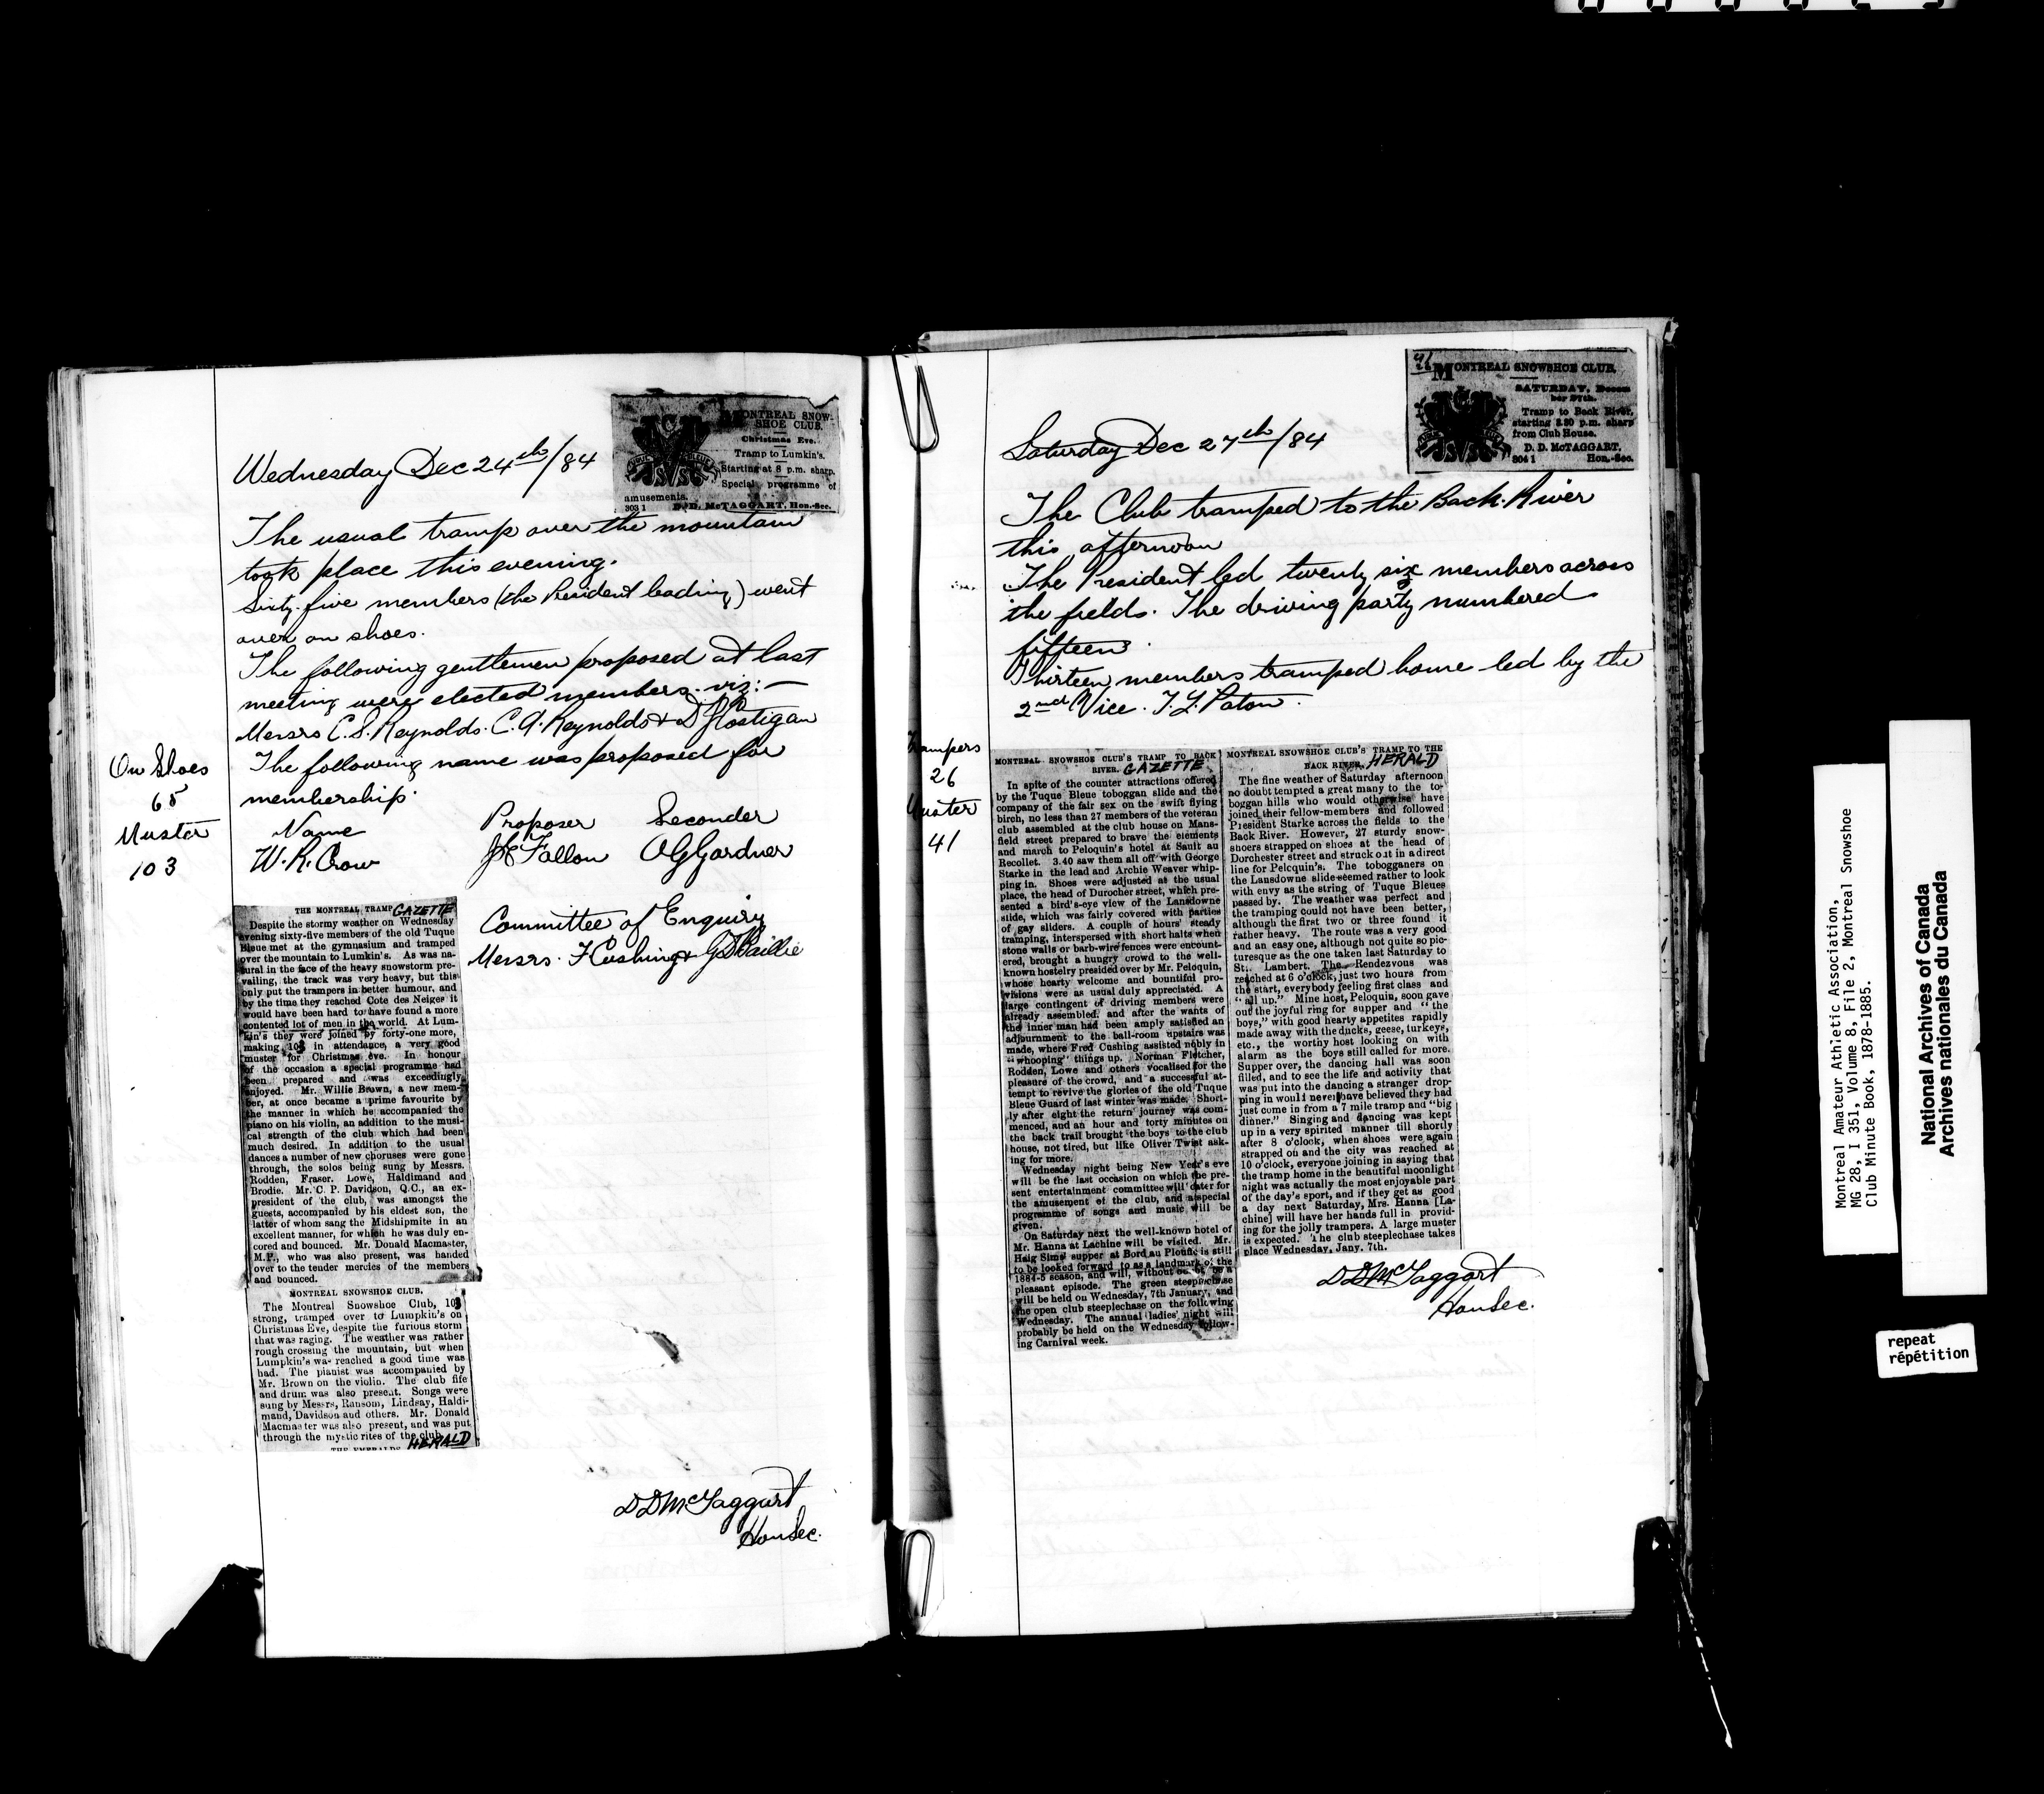 MONTREAL SNOW-
SHOE CLUB.
Christmas Eve.
Tramp to Lumkin's.
Starting at 8 p.m. sharp.
Special programme of
amusements.
303 1 D. D. McTAGGART, Hon.-Sec.
Wednesday Dec 24th/84
The usual tramp over the mountain
took place this evening.
Sixty-five members (the President leading) went
over on shoes.
The following gentlemen proposed at last
meeting were elected members. viz:—
Messrs C. S. Reynolds. C. A. Reynolds & D Costigan
The following name was proposed for
membership.
On Shoes
65
Muster
103
Name Proposer Seconder
W. R. Crow Fallon Gardner
Committee of Enquiry
Messrs. F Cushing & G D Baillie
THE MONTREAL TRAMP GAZETTE
Despite the stormy weather on Wednesday
evening sixty-five members of the old Tuque
Bleue met at the gymnasium and tramped
over the mountain to Lumkin's. As was na-
tural in the face of the heavy snowstorm pre-
vailing, the track was very heavy, but this
only put the trampers in better humour, and
by the time they reached Cote des Neiges it
would have been hard to have found a more
contented lot of men in the world. At Lum-
kin's they were joined by forty-one more,
making 103 in attendance, a very good
muster for Christmas eve. In honour
of the occasion a special programme had
been prepared and was exceedingly
enjoyed. Mr. Willie Brown, a new mem-
ber, at once became a prime favourite by
the manner in which he accompanied the
piano on his violin, an addition to the musi-
cal strength of the club which had been
much desired. In addition to the usual
dances a number of new choruses were gone
through, the solos being sung by Messrs.
Rodden, Fraser, Lowe, Haldimand and
Brodie. Mr. C. P. Davidson, Q.C., an ex-
president of the club, was amongst the
guests, accompanied by his eldest son, the
latter of whom sang the Midshipmite in an
excellent manner, for which he was duly en-
cored and bounced. Mr. Donald Macmaster,
M.P., who was also present, was handed
over to the tender mercies of the members
and bounced.
MONTREAL SNOWSHOE CLUB.
The Montreal Snowshoe Club, 103
strong, tramped over to Lumpkin's on
Christmas Eve, despite the furious storm
that was raging. The weather was rather
rough crossing the mountain, but when
Lumpkin's was reached a good time was
had. The pianist was accompanied by
Mr. Brown on the violin. The club fife
and drum was also present. Songs were
sung by Messrs, Ransom, Lindsay, Haldi-
mand, Davidson and others. Mr. Donald
Macmaster was also present, and was put
through the mystic rites of the club.
THE EMERALDS HERALD
D D McTaggart
Hon Sec.
41
26
MONTREAL SNOWSHOE CLUB.
SATURDAY, Decem
ber 27th.
Tramp to Back River,
starting 3.30 p.m. sharp
from Club House.
D. D. McTAGGART,
304 1 Hon.-Sec.
Saturday Dec 27th/84
The Club tramped to the Back River
this afternoon
The President led twenty six members across
the fields. The driving party numbered
fifteen.
Thirteen members tramped home led by the
2nd Vice. T. L. Paton.
Trampers
26
Muster
41
MONTREAL SNOWSHOE CLUB'S TRAMP TO BACK
RIVER. GAZETTE
In spite of the counter attractions offered
by the Tuque Bleue toboggan slide and the
company of the fair sex on the swift flying
birch, no less than 27 members of the veteran
club assembled at the club house on Mans-
field street prepared to brave the elements
and march to Peloquin's hotel at Sault au
Recollet. 3.40 saw them all off with George
Starke in the lead and Archie Weaver whip-
ping in. Shoes were adjusted at the usual
place, the head of Durocher street, which pre-
sented a bird's-eye view of the Lansdowne
slide, which was fairly covered with parties
of gay sliders. A couple of hours' steady
tramping, interspersed with short halts when
stone walls or barb-wire fences were encount-
ered, brought a hungry crowd to the well-
known hostelry presided over by Mr. Peloquin,
whose hearty welcome and bountiful pro-
visions were as usual duly appreciated. A
large contingent of driving members were
already assembled, and after the wants of
the inner man had been amply satisfied an
adjournment to the ball-room upstairs was
made, where Fred Cushing assisted nobly in
"whooping" things up. Norman Fletcher,
Rodden, Lowe and others vocalised for the
pleasure of the crowd, and a successful at-
tempt to revive the glories of the old Tuque
Bleue Guard of last winter was made. Short-
ly after eight the return journey was com-
menced, and an hour and forty minutes on
the back trail brought the boys to the club
house, not tired, but like Oliver Twist ask-
ing for more.
Wednesday night being New Year's eve
will be the last occasion on which the pre-
sent entertainment committee will cater for
the amusement of the club, and a special
programme of songs and music will be
given.
On Saturday next the well-known hotel of
Mr. Hanna at Lachine will be visited. Mr.
Haig Sims' supper at Bord au Plouffe is still
to be looked forward to as a landmark of the
1884-5 season, and will, without be a
pleasant episode. The green steeplechase
will be held on Wednesday, 7th January, and
the open club steeplechase on the following
Wednesday. The annual ladies' night will
probably be held on the Wednesday follow-
ing Carnival week.
MONTREAL SNOWSHOE CLUB'S TRAMP TO THE
BACK RIVER. HERALD
The fine weather of Saturday afternoon
no doubt tempted a great many to the to-
boggan hills who would otherwise have
joined their fellow-members and followed
President Starke across the fields to the
Back River. However, 27 sturdy snow-
shoers strapped on shoes at the head of
Dorchester street and struck out in a direct
line for Pelcquin's. The tobogganers on
the Lansdowne slide seemed rather to look
with envy as the string of Tuque Bleues
passed by. The weather was perfect and
the tramping could not have been better,
although the first two or three found it
rather heavy. The route was a very good
and an easy one, although not quite so pic-
turesque as the one taken last Saturday to
St. Lambert. The Rendezvous was
reached at 6 o'clock, just two hours from
the start, everybody feeling first class and
"all up." Mine host, Peloquin, soon gave
out the joyful ring for supper and "the
boys," with good hearty appetites rapidly
made away with the ducks, geese, turkeys,
etc., the worthy host looking on with
alarm as the boys still called for more.
Supper over, the dancing hall was soon
filled, and to see the life and activity that
was put into the dancing a stranger drop-
ping in would never have believed they had
just come in from a 7 mile tramp and "big
dinner." Singing and dancing was kept
up in a very spirited manner till shortly
after 8 o'clock, when shoes were again
strapped on and the city was reached at
10 o'clock, everyone joining in saying that
the tramp home in the beautiful moonlight
night was actually the most enjoyable part
of the day's sport, and if they get as good
a day next Saturday, Mrs. Hanna [La-
chine] will have her hands full in provid-
ing for the jolly trampers. A large muster
is expected. The club steeplechase takes
place Wednesday, Jany. 7th.
D D McTaggart
Hon Sec.
Montreal Amateur Athletic Association,
MG 28, I 351, Volume 8, File 2, Montreal Snowshoe
Club Minute Book, 1878-1885.
National Archives of Canada
Archives nationales du Canada
repeat
répétition